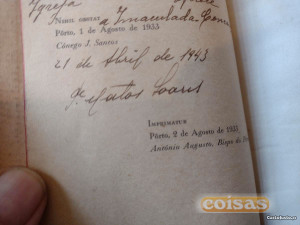 Igreja
NIHIL OBSTAT
a Imaculada
Pôrto, 1 de Agosto de 1935
Cónego J. Santos
21 de Abril de 1943
P. Matos Soares
IMPRIMATUR
Pôrto, 2 de Agosto de 193
António Augusto, Bispo do
coisas